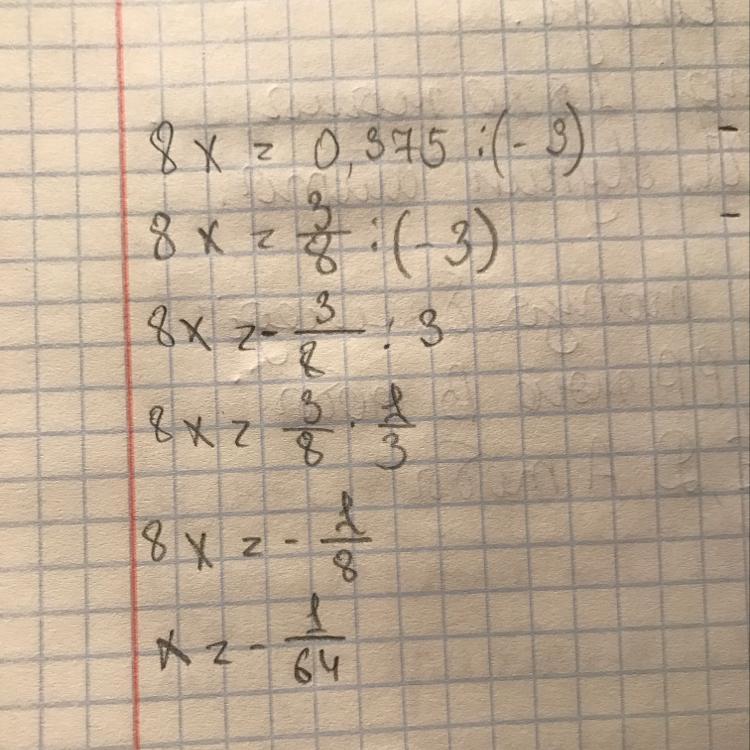 8x = 0,375 : (-3)
8x = 3/8 : (-3)
8x = - 3/8 : 3
8x = 3/8 · 1/3
8x = - 1/8
x = - 1/64